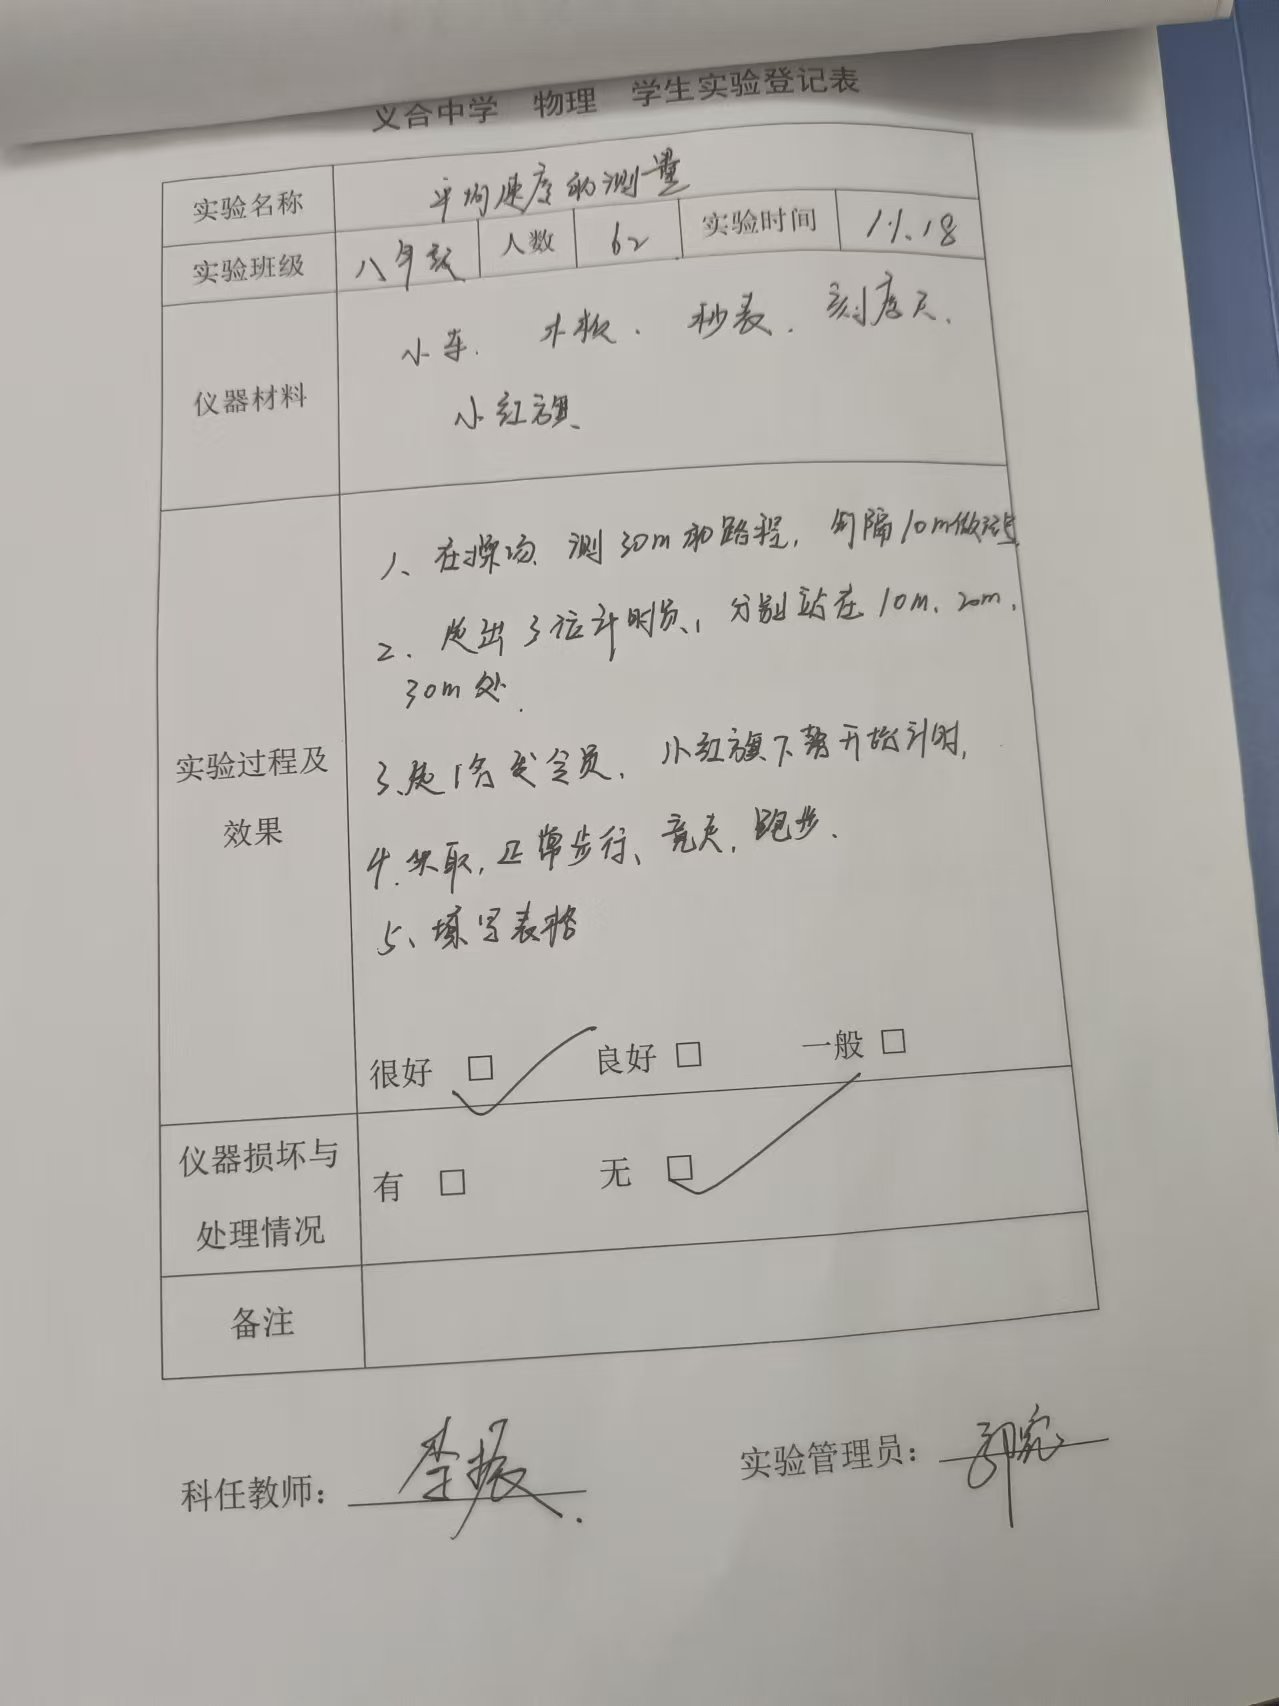 义合中学 物理 学生实验登记表
实验名称 平均速度的测量
实验班级 八年级 人数 62 实验时间 11.18
仪器材料
小车. 木板. 秒表. 刻度尺.
小红旗.
实验过程及
效果
1、在操场测30m的路程, 间隔10m做记号
2. 选出3位计时员, 分别站在10m、20m、
30m处.
3、选1名发令员, 小红旗下落开始计时,
4. 采取, 正常步行、竞走, 跑步.
5、填写表格
很好 □ 良好 □ 一般 □
仪器损坏与
处理情况
有 □ 无 □
备注
科任教师: 李振 实验管理员: 郭